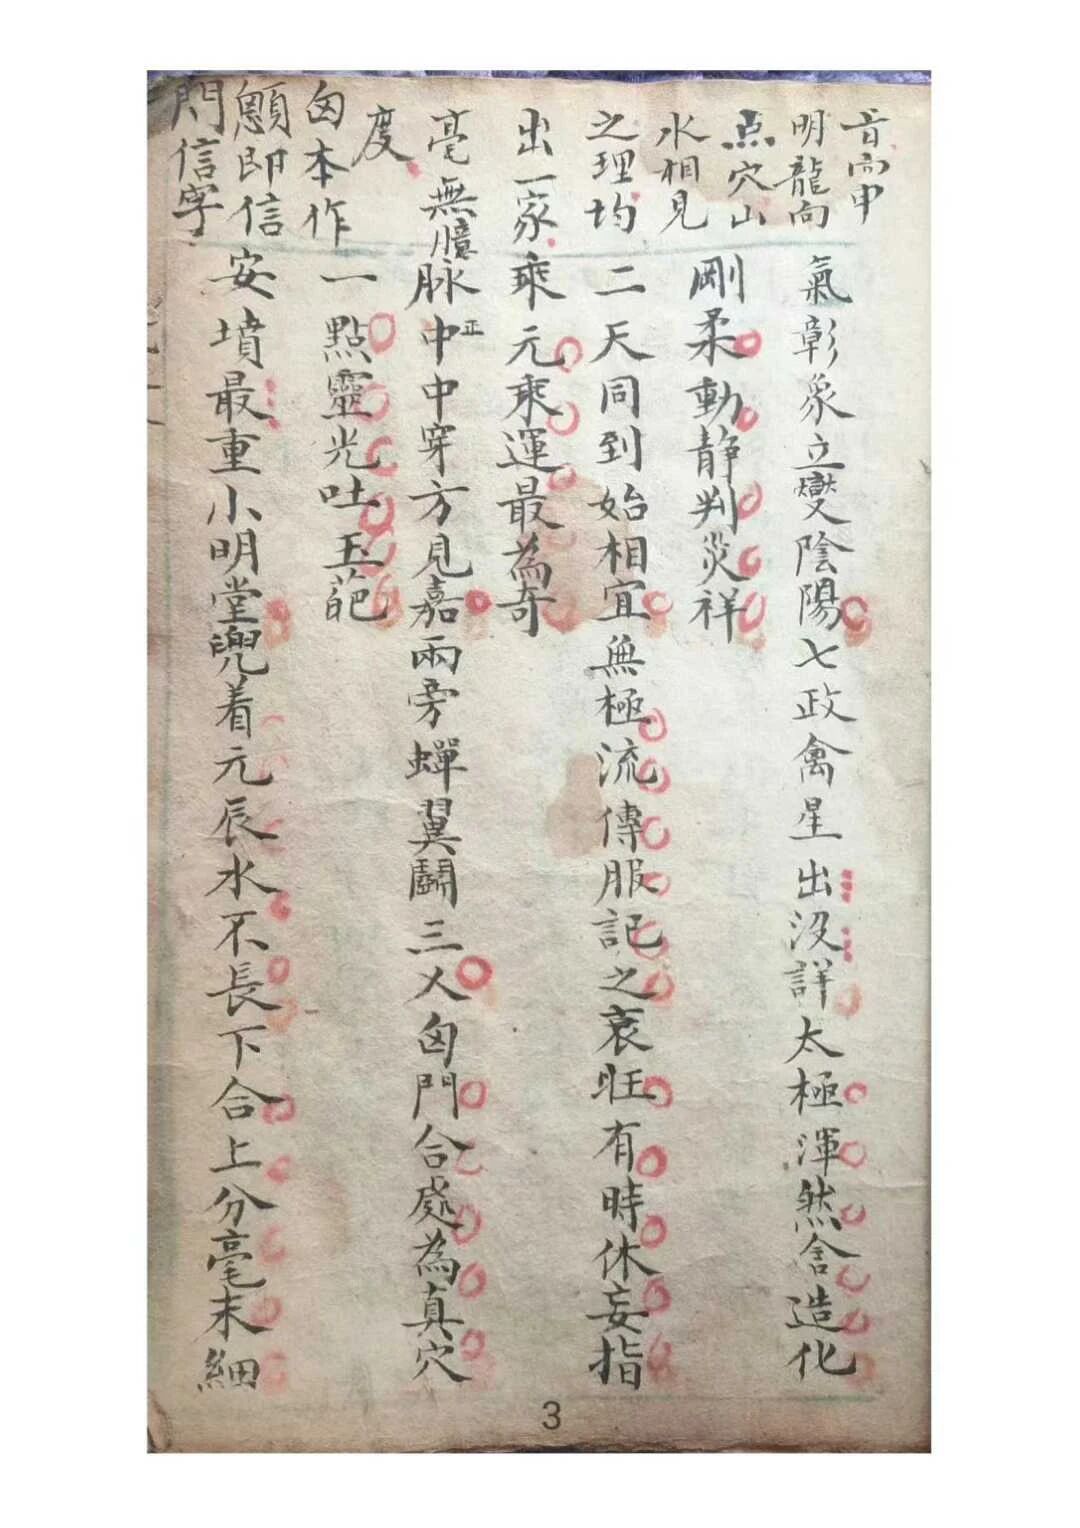 音向中
明龍向
点穴山
水相見
之理均
出一家
毫無臆
度
匈本作
即信
門信字
氣彰象立變陰陽七政禽星出没詳太極渾然含造化
剛柔動静判災祥
二天同到始相宜無極流傳服記之衰旺有時休妄指
乘元乘運最為奇
脉中正中穿方見嘉兩旁蟬翼鬪三乂匈門合處為真穴
一點靈光吐玉葩
安墳最重小明堂兜着元辰水不長下合上分毫末細
3